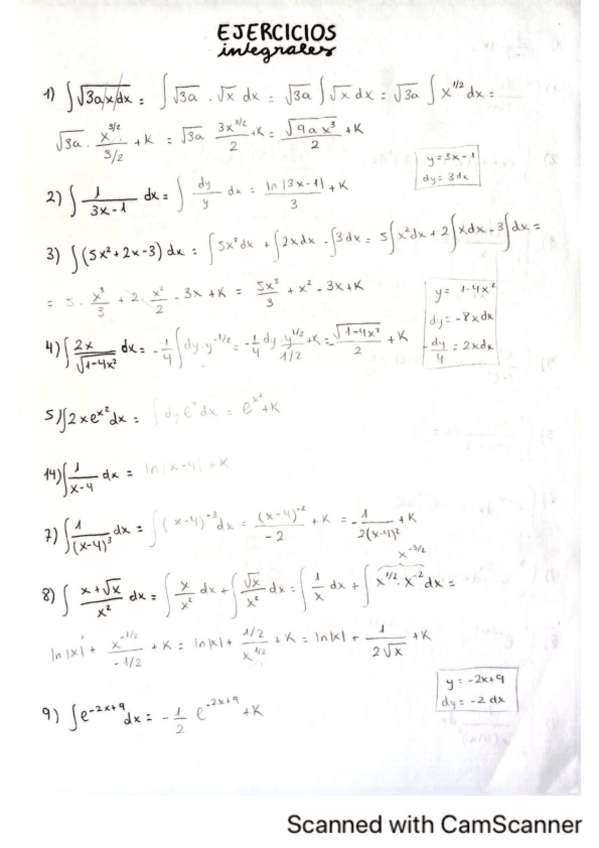 EJERCICIOS
integrales
1) ∫√3ax dx = ∫ √3a · √x dx = √3a ∫ √x dx = √3a ∫ x^1/2 dx =
√3a · x^3/2 / 3/2 + K = √3a 3x^3/2 / 2 + K = √9ax³ / 2 + K
y = 3x - 1
dy = 3dx
2) ∫ 1/(3x-1) dx = ∫ dy/y dx = ln|3x-1| / 3 + K
3) ∫(5x² + 2x - 3) dx = ∫5x²dx + ∫2xdx - ∫3dx = 5∫x²dx + 2∫xdx - 3∫dx =
= 5 · x³/3 + 2 · x²/2 - 3x + K = 5x³/3 + x² - 3x + K
y = 1-4x²
dy = -8xdx
-dy/4 = 2xdx
4) ∫ 2x/√1-4x² dx = -1/4 ∫dy·y^-1/2 = -1/4 dy y^1/2 / 1/2 + K = √1-4x² / 2 + K
5) ∫2xe^x² dx = ∫dy e^y dx = e^x² + K
14) ∫ 1/(x-4) dx = ln|x-4| + K
7) ∫ 1/(x-4)³ dx = ∫(x-4)^-3 dx = (x-4)^-2 / -2 + K = -1/2(x-4)² + K
x^-3/2
8) ∫ x+√x / x² dx = ∫ x/x² dx + ∫ √x/x² dx = ∫ 1/x dx + ∫ x^1/2 · x^-2 dx =
ln|x| + x^-1/2 / -1/2 + K = ln|x| + 1/2 / x^1/2 + K = ln|x| + 1/2√x + K
y = -2x+9
dy = -2 dx
9) ∫e^-2x+9 dx = -1/2 e^-2x+9 + K
Scanned with CamScanner